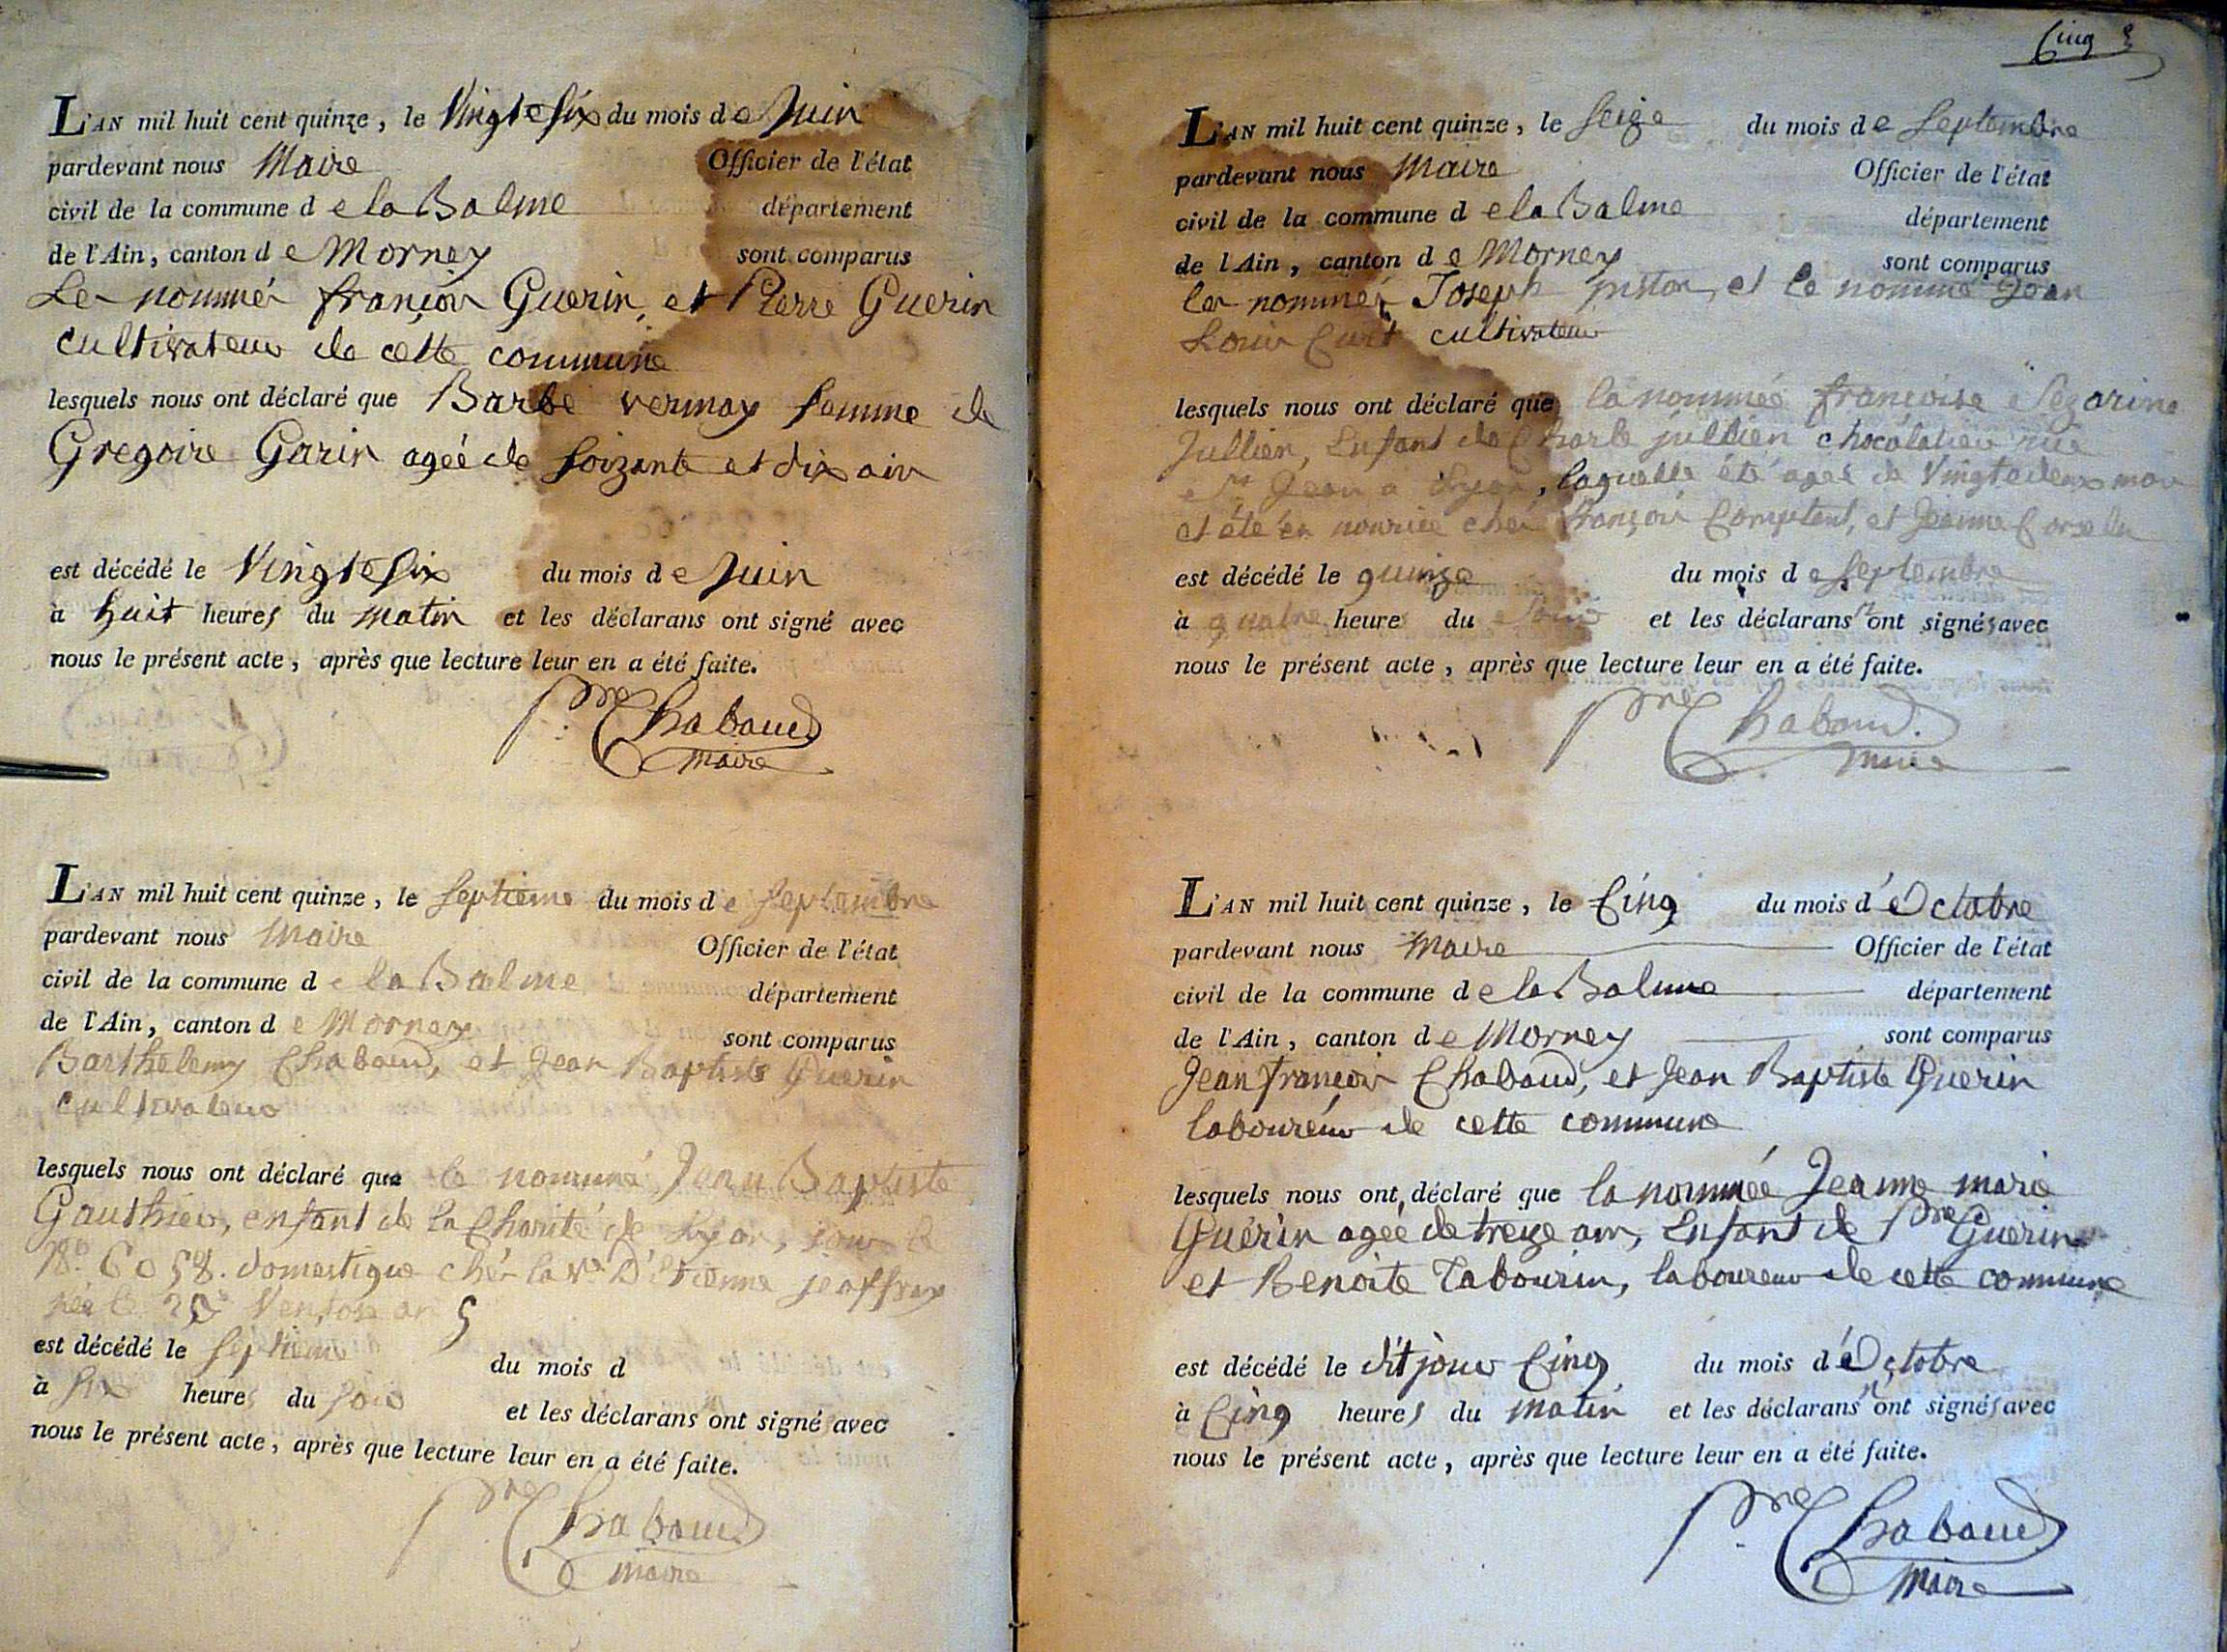 L'AN mil huit cent quinze, le Vingt e six du mois de Juin
pardevant nous Maire Officier de l'état
civil de la commune d e la Balme département
de l'Ain, canton de Mornay sont comparus
Les nommés françois Guerin, et Pierre Guerin
cultivateur de cette commune
lesquels nous ont déclaré que Barbe vermay femme de
Gregoire Garin ageé de soizante et dix ans
est décédé le Vingt e six du mois de Juin
à huit heures du matin et les déclarans ont signé avec
nous le présent acte, après que lecture leur en a été faite.
Pre Chabaud
maire
L'AN mil huit cent quinze, le septieme du mois de septembre
pardevant nous Maire Officier de l'état
civil de la commune d e la Balme département
de l'Ain, canton de Mornay sont comparus
Barthelemy Chabaud, et Jean Baptiste Guerin
cultivateur
lesquels nous ont déclaré que le nommé Jean Baptiste
Gauthier, enfant de la Charité de Lyon, sous le
No. 6058. domestique chés la ve D'Etienne jeoffray
nés le Ventose an 5
est décédé le septieme du mois d
à six heures du soir et les déclarans ont signé avec
nous le présent acte, après que lecture leur en a été faite.
Pre Chabaud
maire
Cinq
L'AN mil huit cent quinze, le seize du mois de septembre
pardevant nous Maire Officier de l'état
civil de la commune d e la Balme département
de l'Ain, canton de Mornay sont comparus
les nommés Joseph et le nommé Jean
Louis Curt cultivateur
lesquels nous ont déclaré que la nommée françoise
Jullien, Enfant de Charle jullien chocolatier rue
St Jean a Lyon, laquelle été ageé de Vingt e deux mois
et été en nourice chés françois et Jeanne
est décédé le quinze du mois de septembre
à quatre heure du soir et les déclarans n'ont signés avec
nous le présent acte, après que lecture leur en a été faite.
Pre Chabaud.
maire
L'AN mil huit cent quinze, le Cinq du mois d'Octobre
pardevant nous Maire Officier de l'état
civil de la commune d e la Balme département
de l'Ain, canton de Mornay sont comparus
Jean françois Chabaud, et Jean Baptiste Guerin
laboureur de cette commune
lesquels nous ont déclaré que la nommée Jeanne marie
Guérin ageé de treize ans, Enfant de Pre Guerin
et Benoite Tabourin, laboureur de cette commune
est décédé le dit jour Cinq du mois d'Octobre
à Cinq heures du matin et les déclarans n'ont signés avec
nous le présent acte, après que lecture leur en a été faite.
Pre Chabaud
Maire